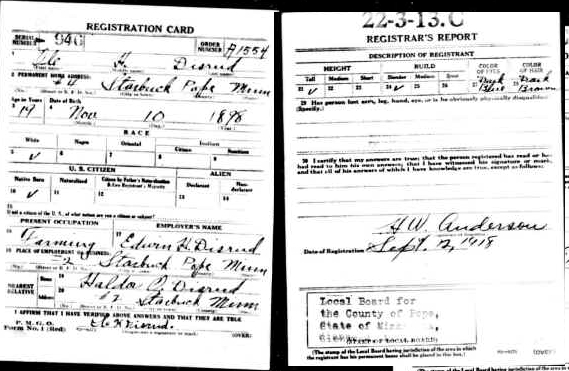 REGISTRATION CARD
SERIAL NUMBER 946 ORDER NUMBER A1554
1 Ole H. Disrud
2 PERMANENT HOME ADDRESS:
Starbuck Pope Minn
Age in Years Date of Birth
19 Nov 10 1898
RACE
White Negro Oriental Indian
Citizen Noncitizen
5 6 7 8 9
U. S. CITIZEN ALIEN
Native Born Naturalized Citizen by Father's Naturalization Before Registrant's Majority Declarant Non-declarant
10 11 12 13 14
15
If not a citizen of the U. S., of what nation are you a citizen or subject?
PRESENT OCCUPATION EMPLOYER'S NAME
16 Farming 17 Edwin H Disrud
18 PLACE OF EMPLOYMENT OR BUSINESS:
2 Starbuck Pope Minn
NEAREST RELATIVE Name 19 Haldor O Disrud
Address 20 Starbuck Minn
I AFFIRM THAT I HAVE VERIFIED ABOVE ANSWERS AND THAT THEY ARE TRUE
P. M. G. O.
Form No. 1 (Red) Ole H Disrud. (OVER)
22-3-13. C
REGISTRAR'S REPORT
DESCRIPTION OF REGISTRANT
HEIGHT BUILD COLOR OF EYES COLOR OF HAIR
Tall Medium Short Slender Medium Stout
21 22 23 24 25 26 27 Dark Blue 28 Dark Brown
29 Has person lost arm, leg, hand, eye, or is he obviously physically disqualified?
(Specify.)
30 I certify that my answers are true; that the person registered has read or has had read to him his own answers; that I have witnessed his signature or mark, and that all of his answers of which I have knowledge are true, except as follows:
H.W. Anderson
Date of Registration Sept. 12, 1918
Local Board for
the County of Pope,
State of
(STAMP OF LOCAL BOARD)
(The stamp of the Local Board having jurisdiction of the area in which the registrant has his permanent home shall be placed in this box.)
(OVER)